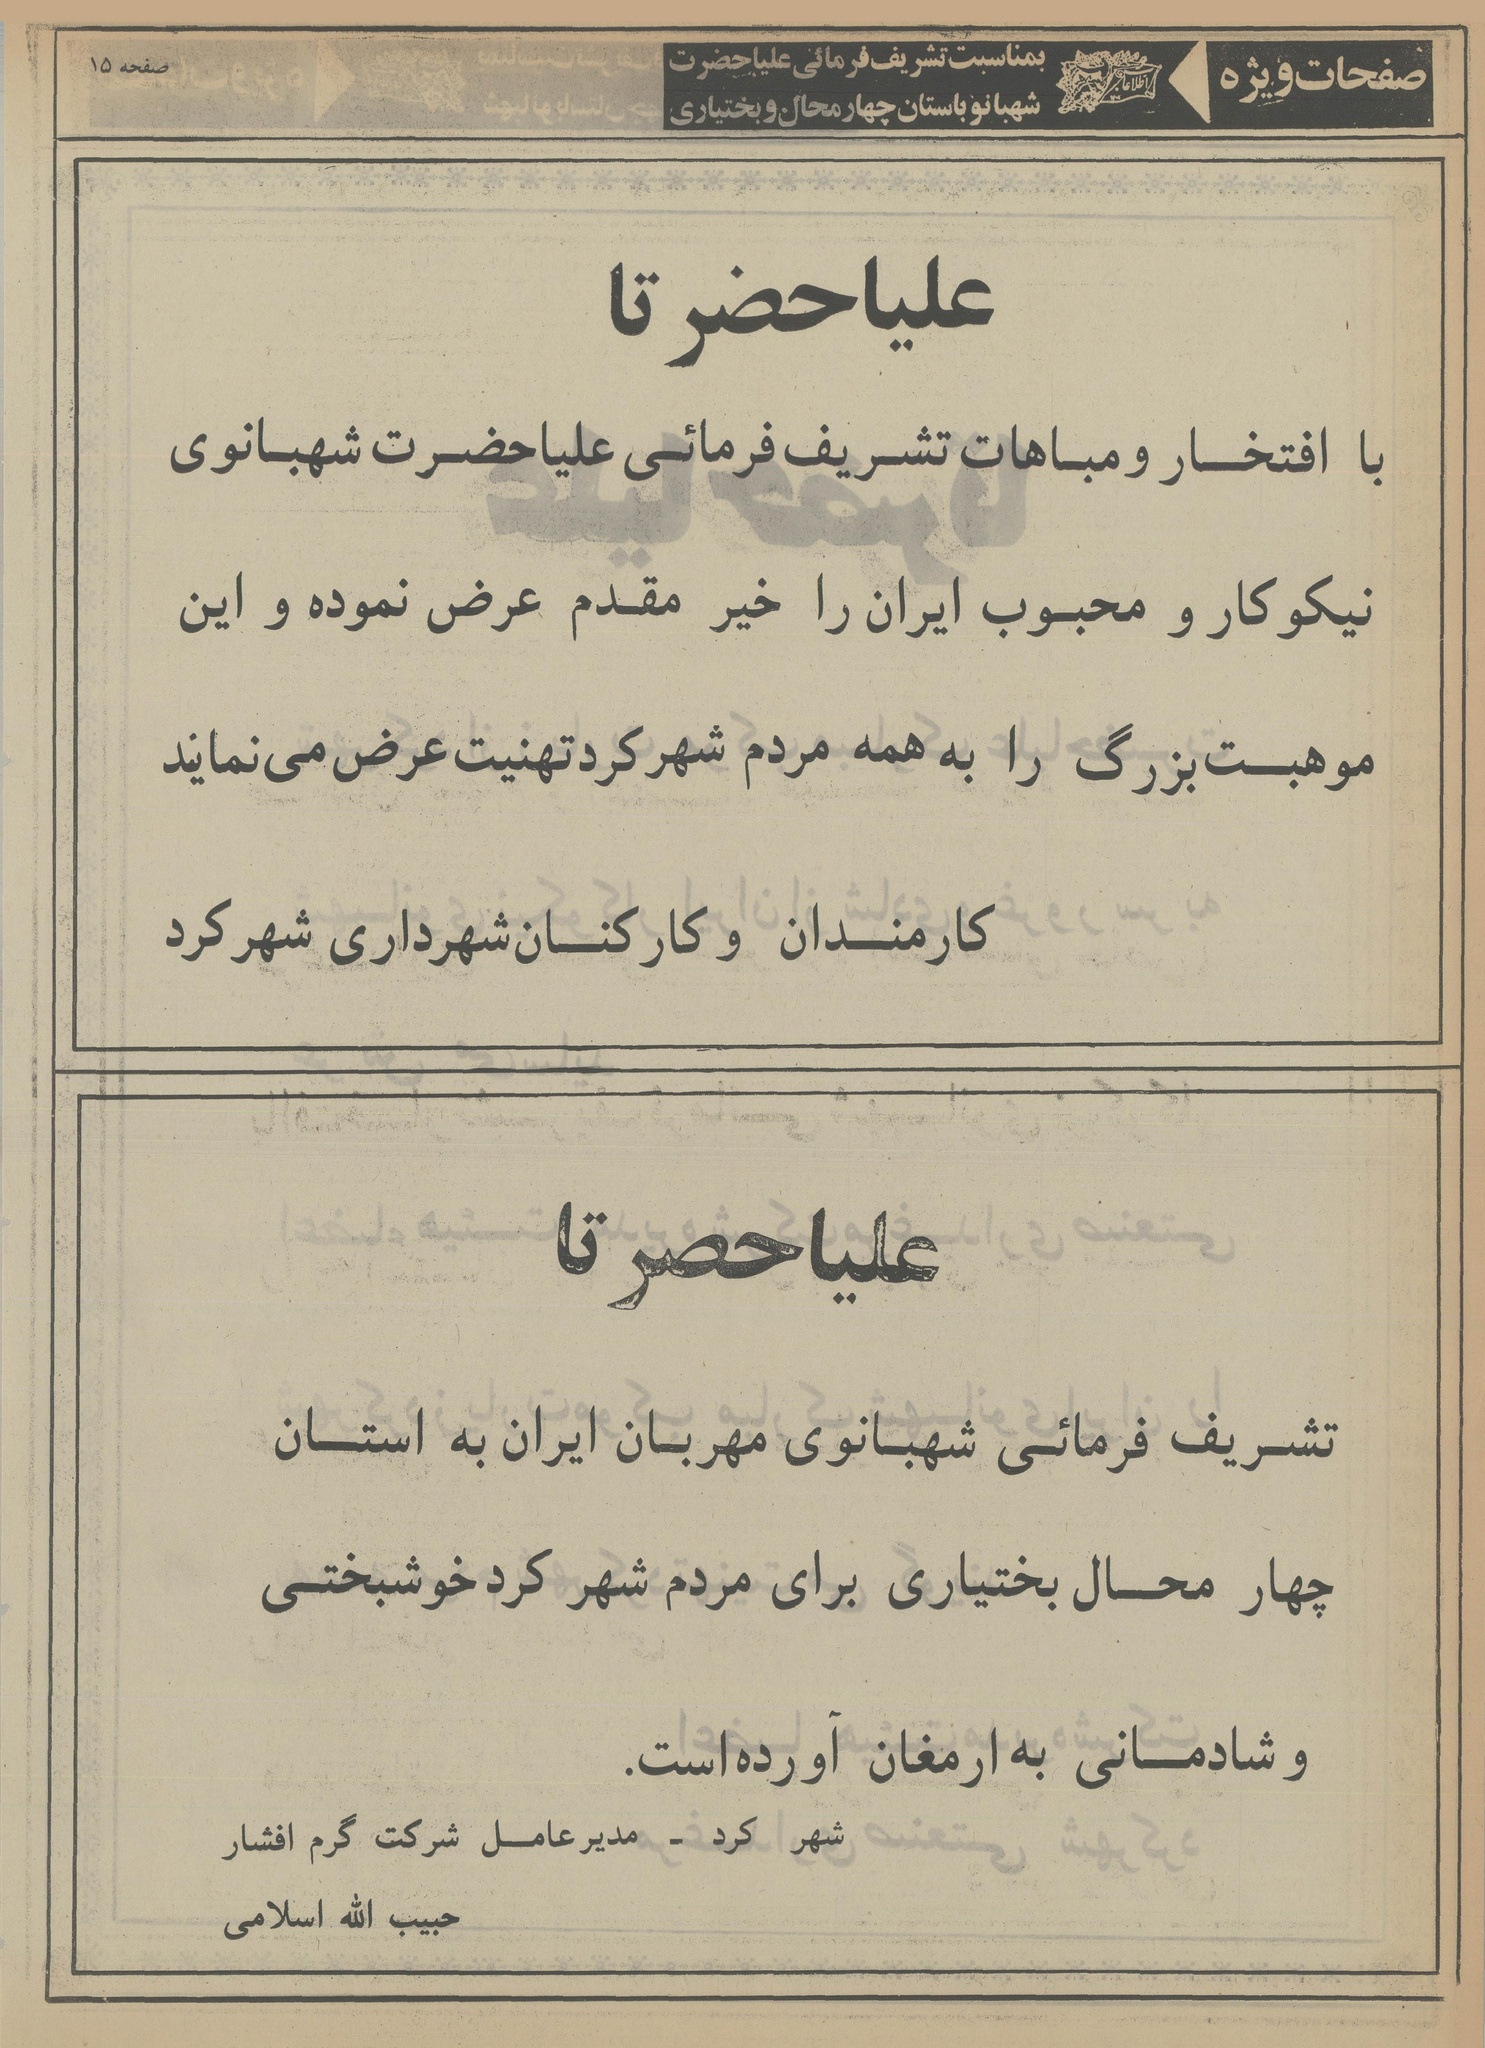 صفحات ویژه
اطلاعات
بمناسبت تشریف فرمائی علیاحضرت
شهبانو باستان چهارمحال و بختیاری
صفحه ۱۵
علیاحضرتا
با افتخار و مباهات تشریف فرمائی علیاحضرت شهبانوی
نیکوکار و محبوب ایران را خیر مقدم عرض نموده و این
موهبت بزرگ را به همه مردم شهرکرد تهنیت عرض می‌نماید
کارمندان و کارکنان شهرداری شهرکرد
علیاحضرتا
تشریف فرمائی شهبانوی مهربان ایران به استان
چهار محال بختیاری برای مردم شهر کرد خوشبختی
و شادمانی به ارمغان آورده است.
شهر کرد - مدیر عامل شرکت گرم افشار
حبیب الله اسلامی